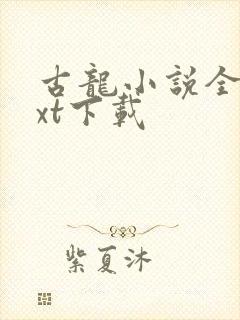 古龍小説全
xt下載
紫夏沐